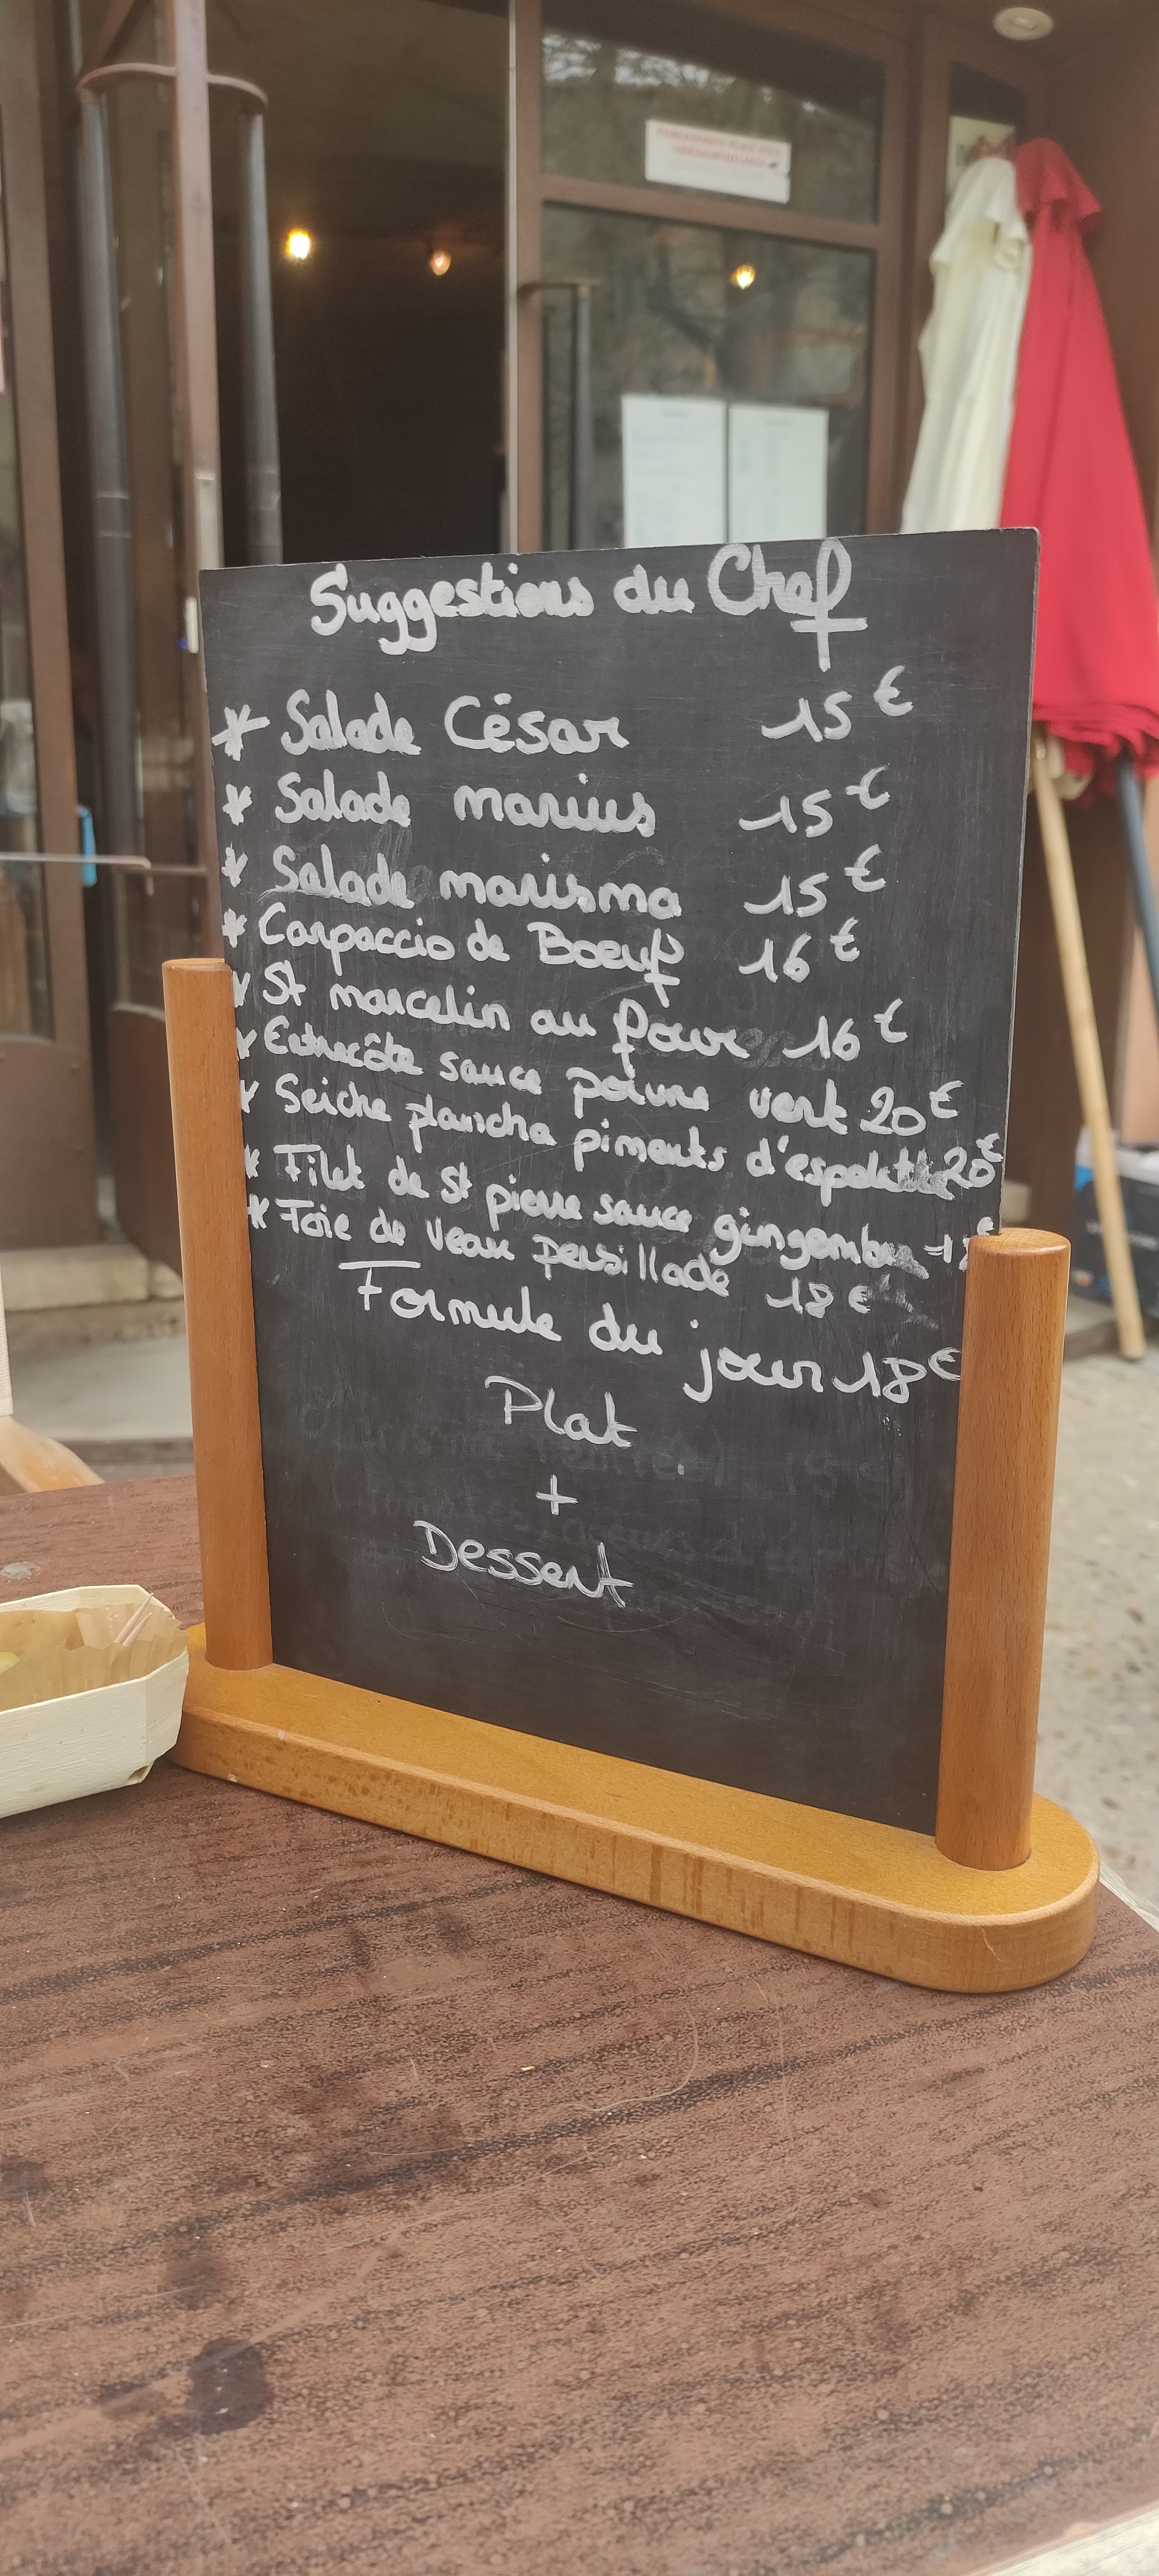 Suggestions du Chef
* Salade César 15€
* Salade marius 15€
* Salade marisma 15€
* Carpaccio de Boeuf 16€
* St marcelin au four 16€
* Entrecôte sauce poivre vert 20€
* Seiche plancha piments d'espelette 20€
* Filet de St pierre sauce gingembre
* Foie de veau persillade 18€
Formule du jour 18€
Plat
+
Dessert